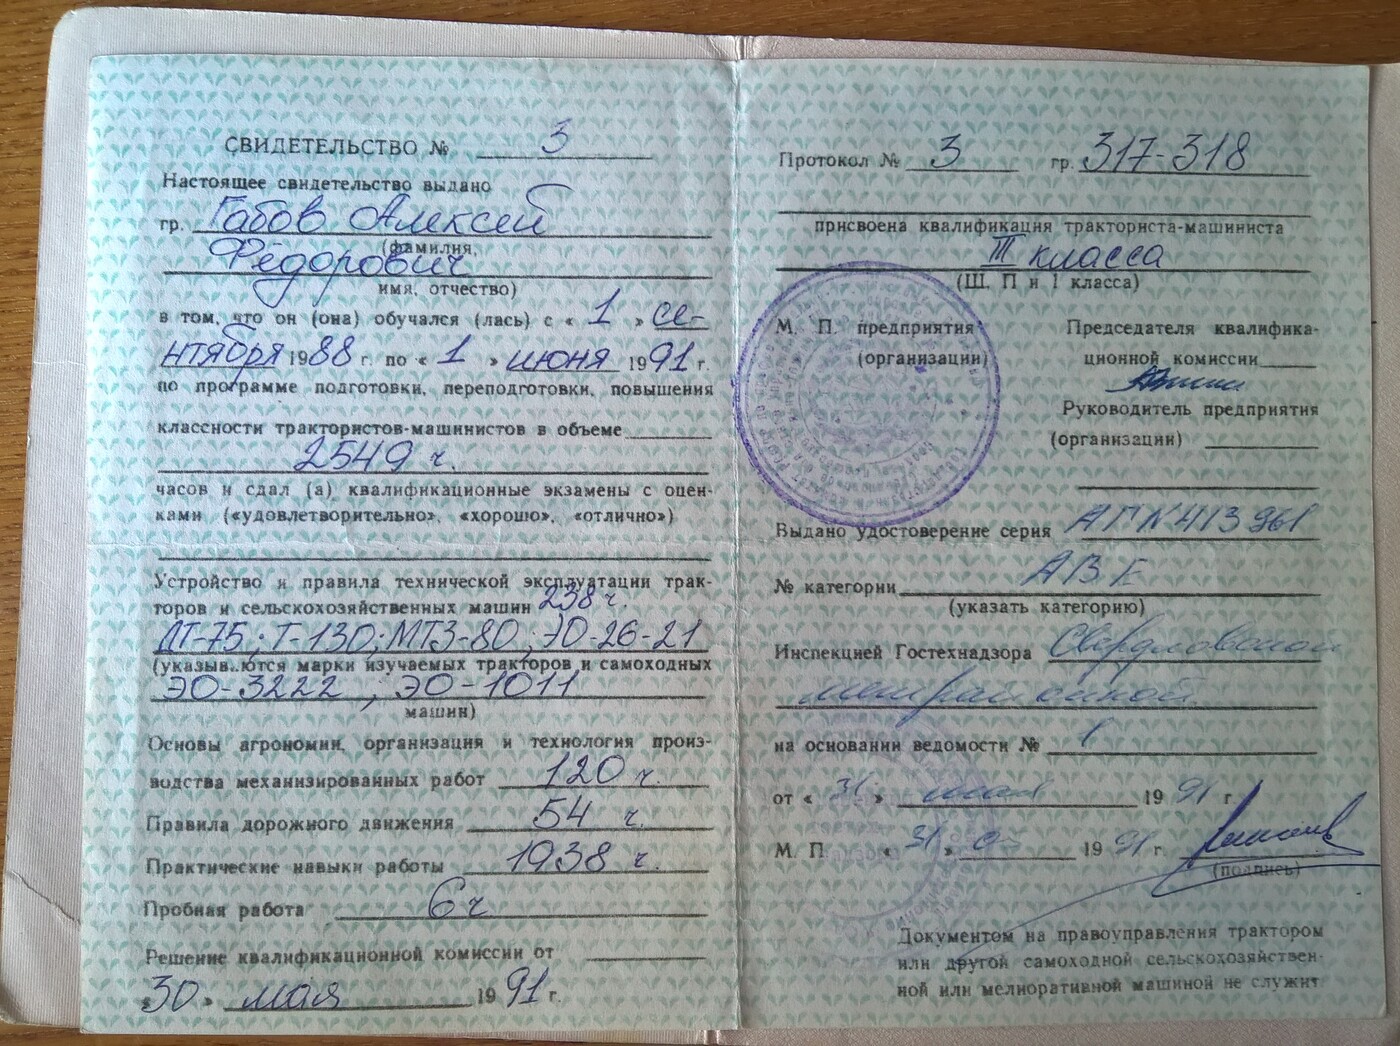 СВИДЕТЕЛЬСТВО № 3
Настоящее свидетельство выдано
гр. Габов Алексей
(фамилия,
Фёдорович
имя, отчество)
в том, что он (она) обучался (лась) с « 1 » се-
нтября 1988 г. по « 1 » июня 1991 г.
по программе подготовки, переподготовки, повышения
классности трактористов-машинистов в объеме
2549 ч.
часов и сдал (а) квалификационные экзамены с оцен-
ками («удовлетворительно», «хорошо», «отлично»)
Устройство и правила технической эксплуатации трак-
торов и сельскохозяйственных машин 238 ч.
ДТ-75; Т-130; МТЗ-80; ЭО-26-21
(указыв..ются марки изучаемых тракторов и самоходных
ЭО-3222 ; ЭО-1011
машин)
Основы агрономии, организация и технология произ-
водства механизированных работ 120 ч.
Правила дорожного движения 54 ч.
Практические навыки работы 1938 ч.
Пробная работа 6 ч
Решение квалификационной комиссии от
«30» мая 1991 г.
Протокол № 3 гр. 317-318
присвоена квалификация тракториста-машиниста
III класса
(Ш. П и 1 класса)
М. П. предприятия
(организации)
Председателя квалифика-
ционной комиссии
Руководитель предприятия
(организации)
Выдано удостоверение серия АГ N 413961
№ категории АВЕ
(указать категорию)
Инспекцией Гостехнадзора Свердловской
на основании ведомости № 1
от « 31 » мая 1991 г.
М. П. « 31 » 1991 г.
(подпись)
Документом на правоуправления трактором
или другой самоходной сельскохозяйствен-
ной или мелиоративной машиной не служит